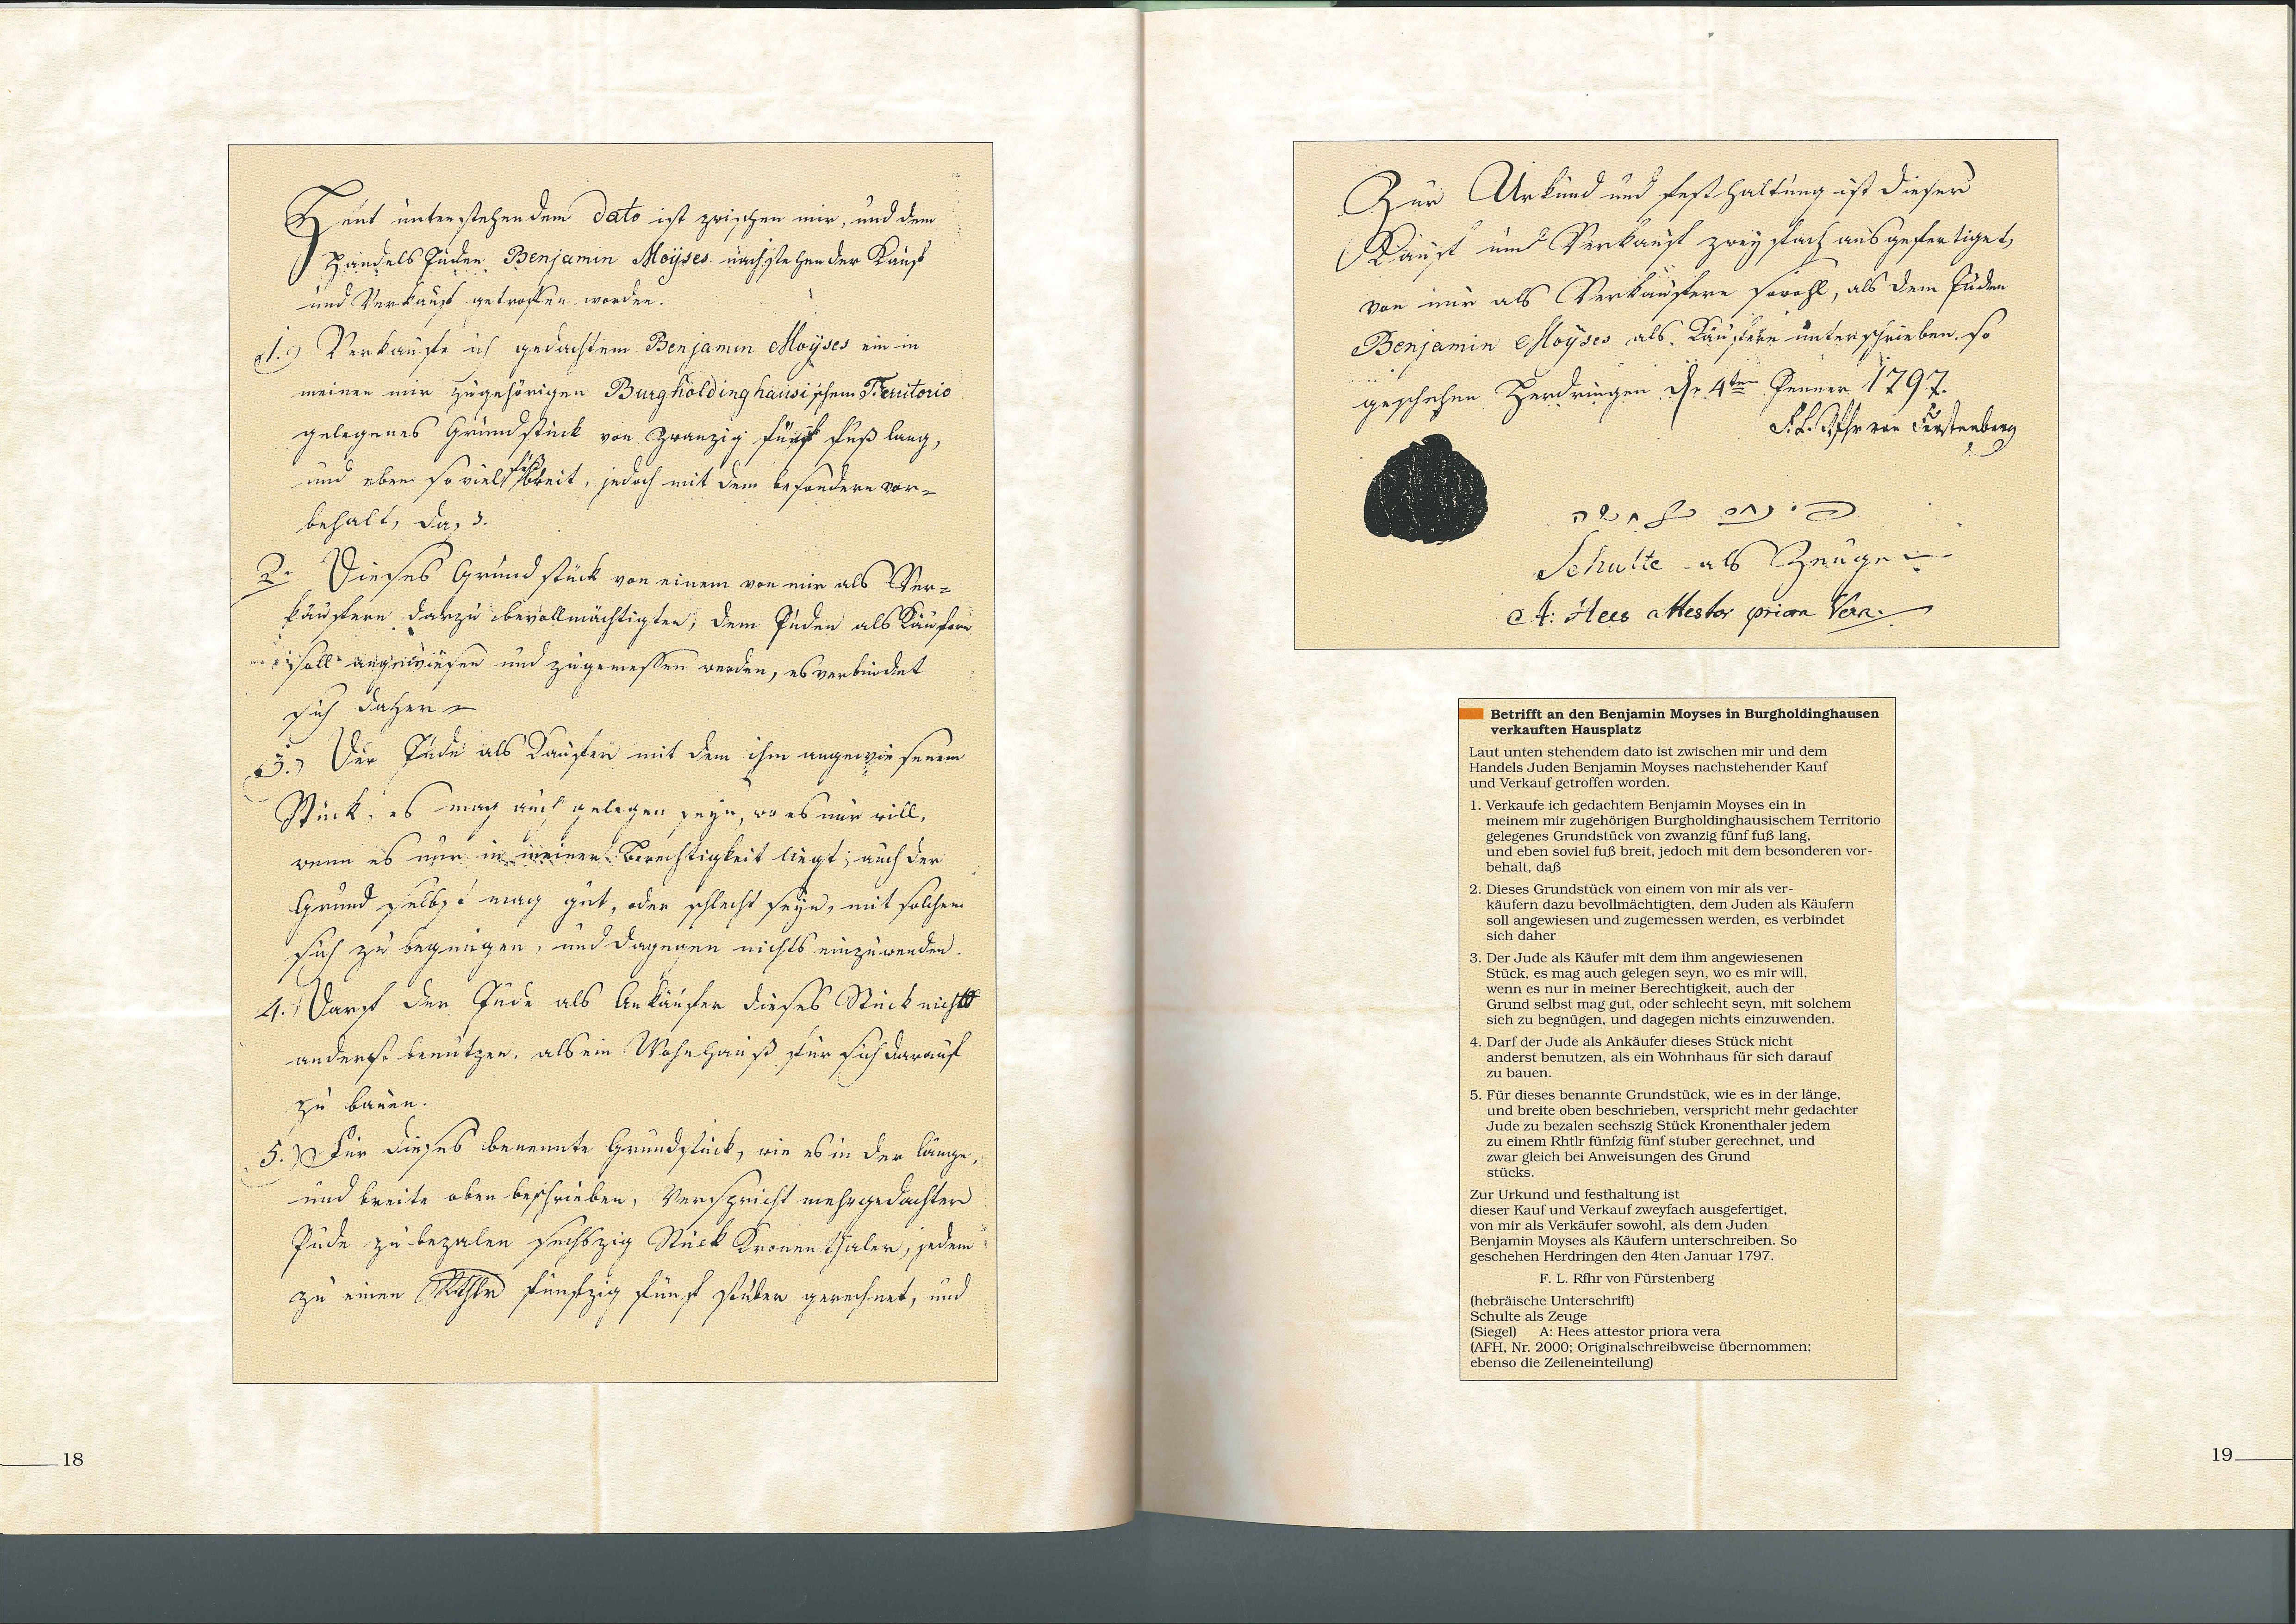 Heut untenstehendem dato ist zwischen mir, und dem
Handels Juden Benjamin Moÿses nachstehender Kauf
und Verkauf getroffen worden.
1.) Verkaufe ich gedachtem Benjamin Moÿses ein in
meinen mir zugehörigen Burgholdinghausischem Territorio
gelegenes Grundstück von zwanzig fünf fuß lang,
und eben soviel fuß breit, jedoch mit dem besondern vor=
behalt, daß
2. Dieses Grundstück von einem von mir als Ver=
käufern darzu bevollmächtigten, dem Juden als Käufern
soll angewiesen und zugemessen werden, es verbindet
sich daher
3.) Der Jude als Käufer mit dem ihm angewiesenem
Stück, es mag auch gelegen seyn, wo es nur will,
wenn es nur in meiner Berechtigkeit liegt, auch der
Grund selbst mag gut, oder schlecht seyn, mit solchem
sich zu begnügen, und dagegen nichts einzuwenden.
4.) Darf der Jude als Ankäufer dieses Stück nicht
anderst benutzen, als ein Wohnhauß für sich darauf
zu bauen.
5.) Für dieses benennte Grundstück, wie es in der länge,
und breite oben beschrieben, verspricht mehrgedachter
Jude zu bezalen sechszig Stück Kronenthaler, jedem
zu einen Rthlr fünfzig fünf stuber gerechnet, und
18
Zur Urkund und festhaltung ist dieser
Kauf und Verkauf zweyfach ausgefertiget,
von mir als Verkäufern sowohl, als dem Juden
Benjamin Moÿses als Käufern unterschrieben. so
geschehen Herdringen den 4ten Jenner 1797.
F. L. Rfhr von Fürstenberg
Schulte als Zeuge
A: Hees attestor priora Vera.
Betrifft an den Benjamin Moyses in Burgholdinghausen
verkauften Hausplatz
Laut unten stehendem dato ist zwischen mir und dem
Handels Juden Benjamin Moyses nachstehender Kauf
und Verkauf getroffen worden.
1. Verkaufe ich gedachtem Benjamin Moyses ein in
meinem mir zugehörigen Burgholdinghausischem Territorio
gelegenes Grundstück von zwanzig fünf fuß lang,
und eben soviel fuß breit, jedoch mit dem besonderen vor-
behalt, daß
2. Dieses Grundstück von einem von mir als ver-
käufern dazu bevollmächtigten, dem Juden als Käufern
soll angewiesen und zugemessen werden, es verbindet
sich daher
3. Der Jude als Käufer mit dem ihm angewiesenen
Stück, es mag auch gelegen seyn, wo es mir will,
wenn es nur in meiner Berechtigkeit, auch der
Grund selbst mag gut, oder schlecht seyn, mit solchem
sich zu begnügen, und dagegen nichts einzuwenden.
4. Darf der Jude als Ankäufer dieses Stück nicht
anderst benutzen, als ein Wohnhaus für sich darauf
zu bauen.
5. Für dieses benannte Grundstück, wie es in der länge,
und breite oben beschrieben, verspricht mehr gedachter
Jude zu bezalen sechszig Stück Kronenthaler jedem
zu einem Rhtlr fünfzig fünf stuber gerechnet, und
zwar gleich bei Anweisungen des Grund
stücks.
Zur Urkund und festhaltung ist
dieser Kauf und Verkauf zweyfach ausgefertiget,
von mir als Verkäufer sowohl, als dem Juden
Benjamin Moyses als Käufern unterschreiben. So
geschehen Herdringen den 4ten Januar 1797.
F. L. Rfhr von Fürstenberg
(hebräische Unterschrift)
Schulte als Zeuge
(Siegel) A: Hees attestor priora vera
(AFH, Nr. 2000; Originalschreibweise übernommen;
ebenso die Zeileneinteilung)
19